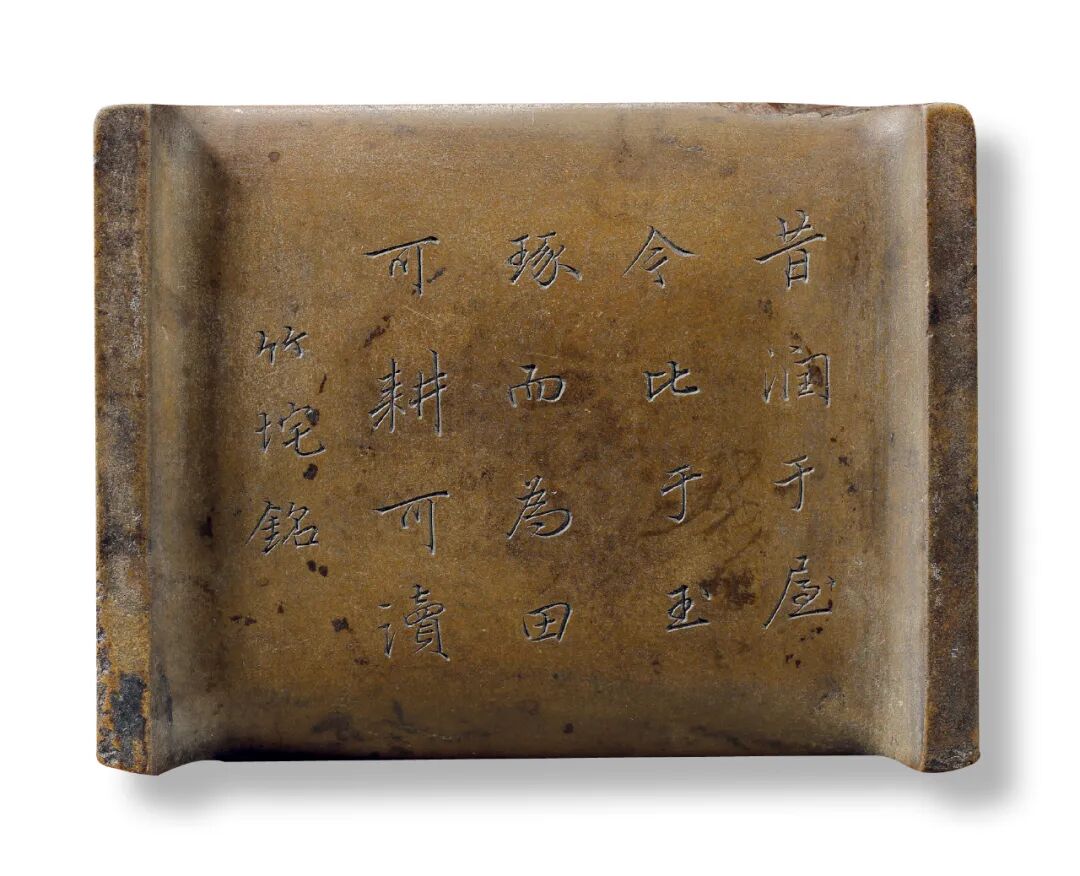 昔润于屋
今比于玉
琢而为田
可耕可讀
竹垞銘